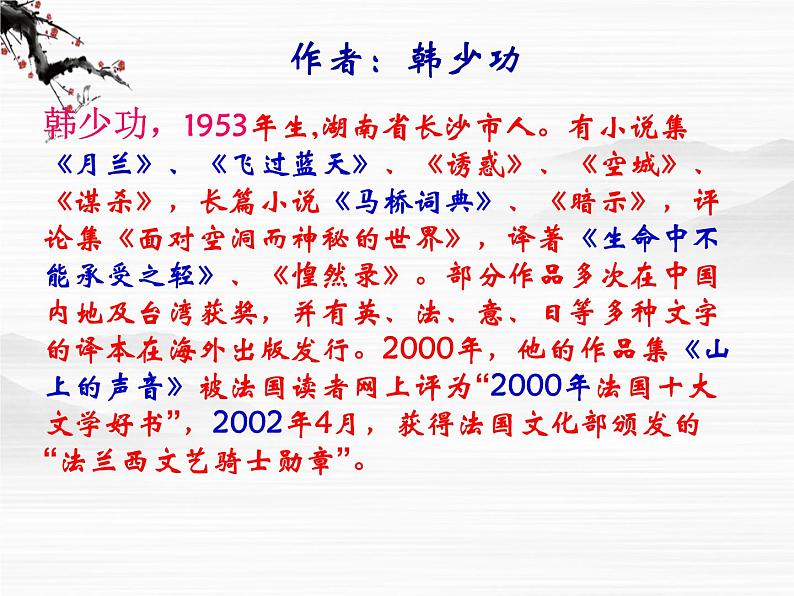 作者：韩少功
韩少功，1953年生,湖南省长沙市人。有小说集
《月兰》、《飞过蓝天》、《诱惑》、《空城》、
《谋杀》，长篇小说《马桥词典》、《暗示》，评
论集《面对空洞而神秘的世界》，译著《生命中不
能承受之轻》、《惶然录》。部分作品多次在中国
内地及台湾获奖，并有英、法、意、日等多种文字
的译本在海外出版发行。2000年，他的作品集《山
上的声音》被法国读者网上评为“2000年法国十大
文学好书”，2002年4月，获得法国文化部颁发的
“法兰西文艺骑士勋章”。